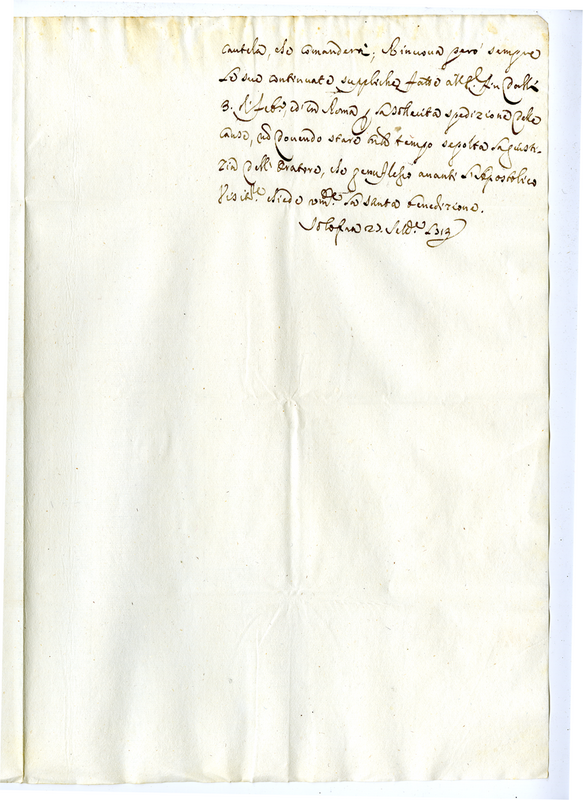 cautela, che comanderà; Rinnova però sempre
le sue continuate suppliche fatte all' fin dalli
3. Feb.º, ed in Roma la sollecita spedizione delle
cause, non dovendo stare tempo sepolta la giusti-
zia dell' Oratore, che genuflesso avanti l' Apostolico
chiede la santa benedizione.
Solofra 27. Sett.e